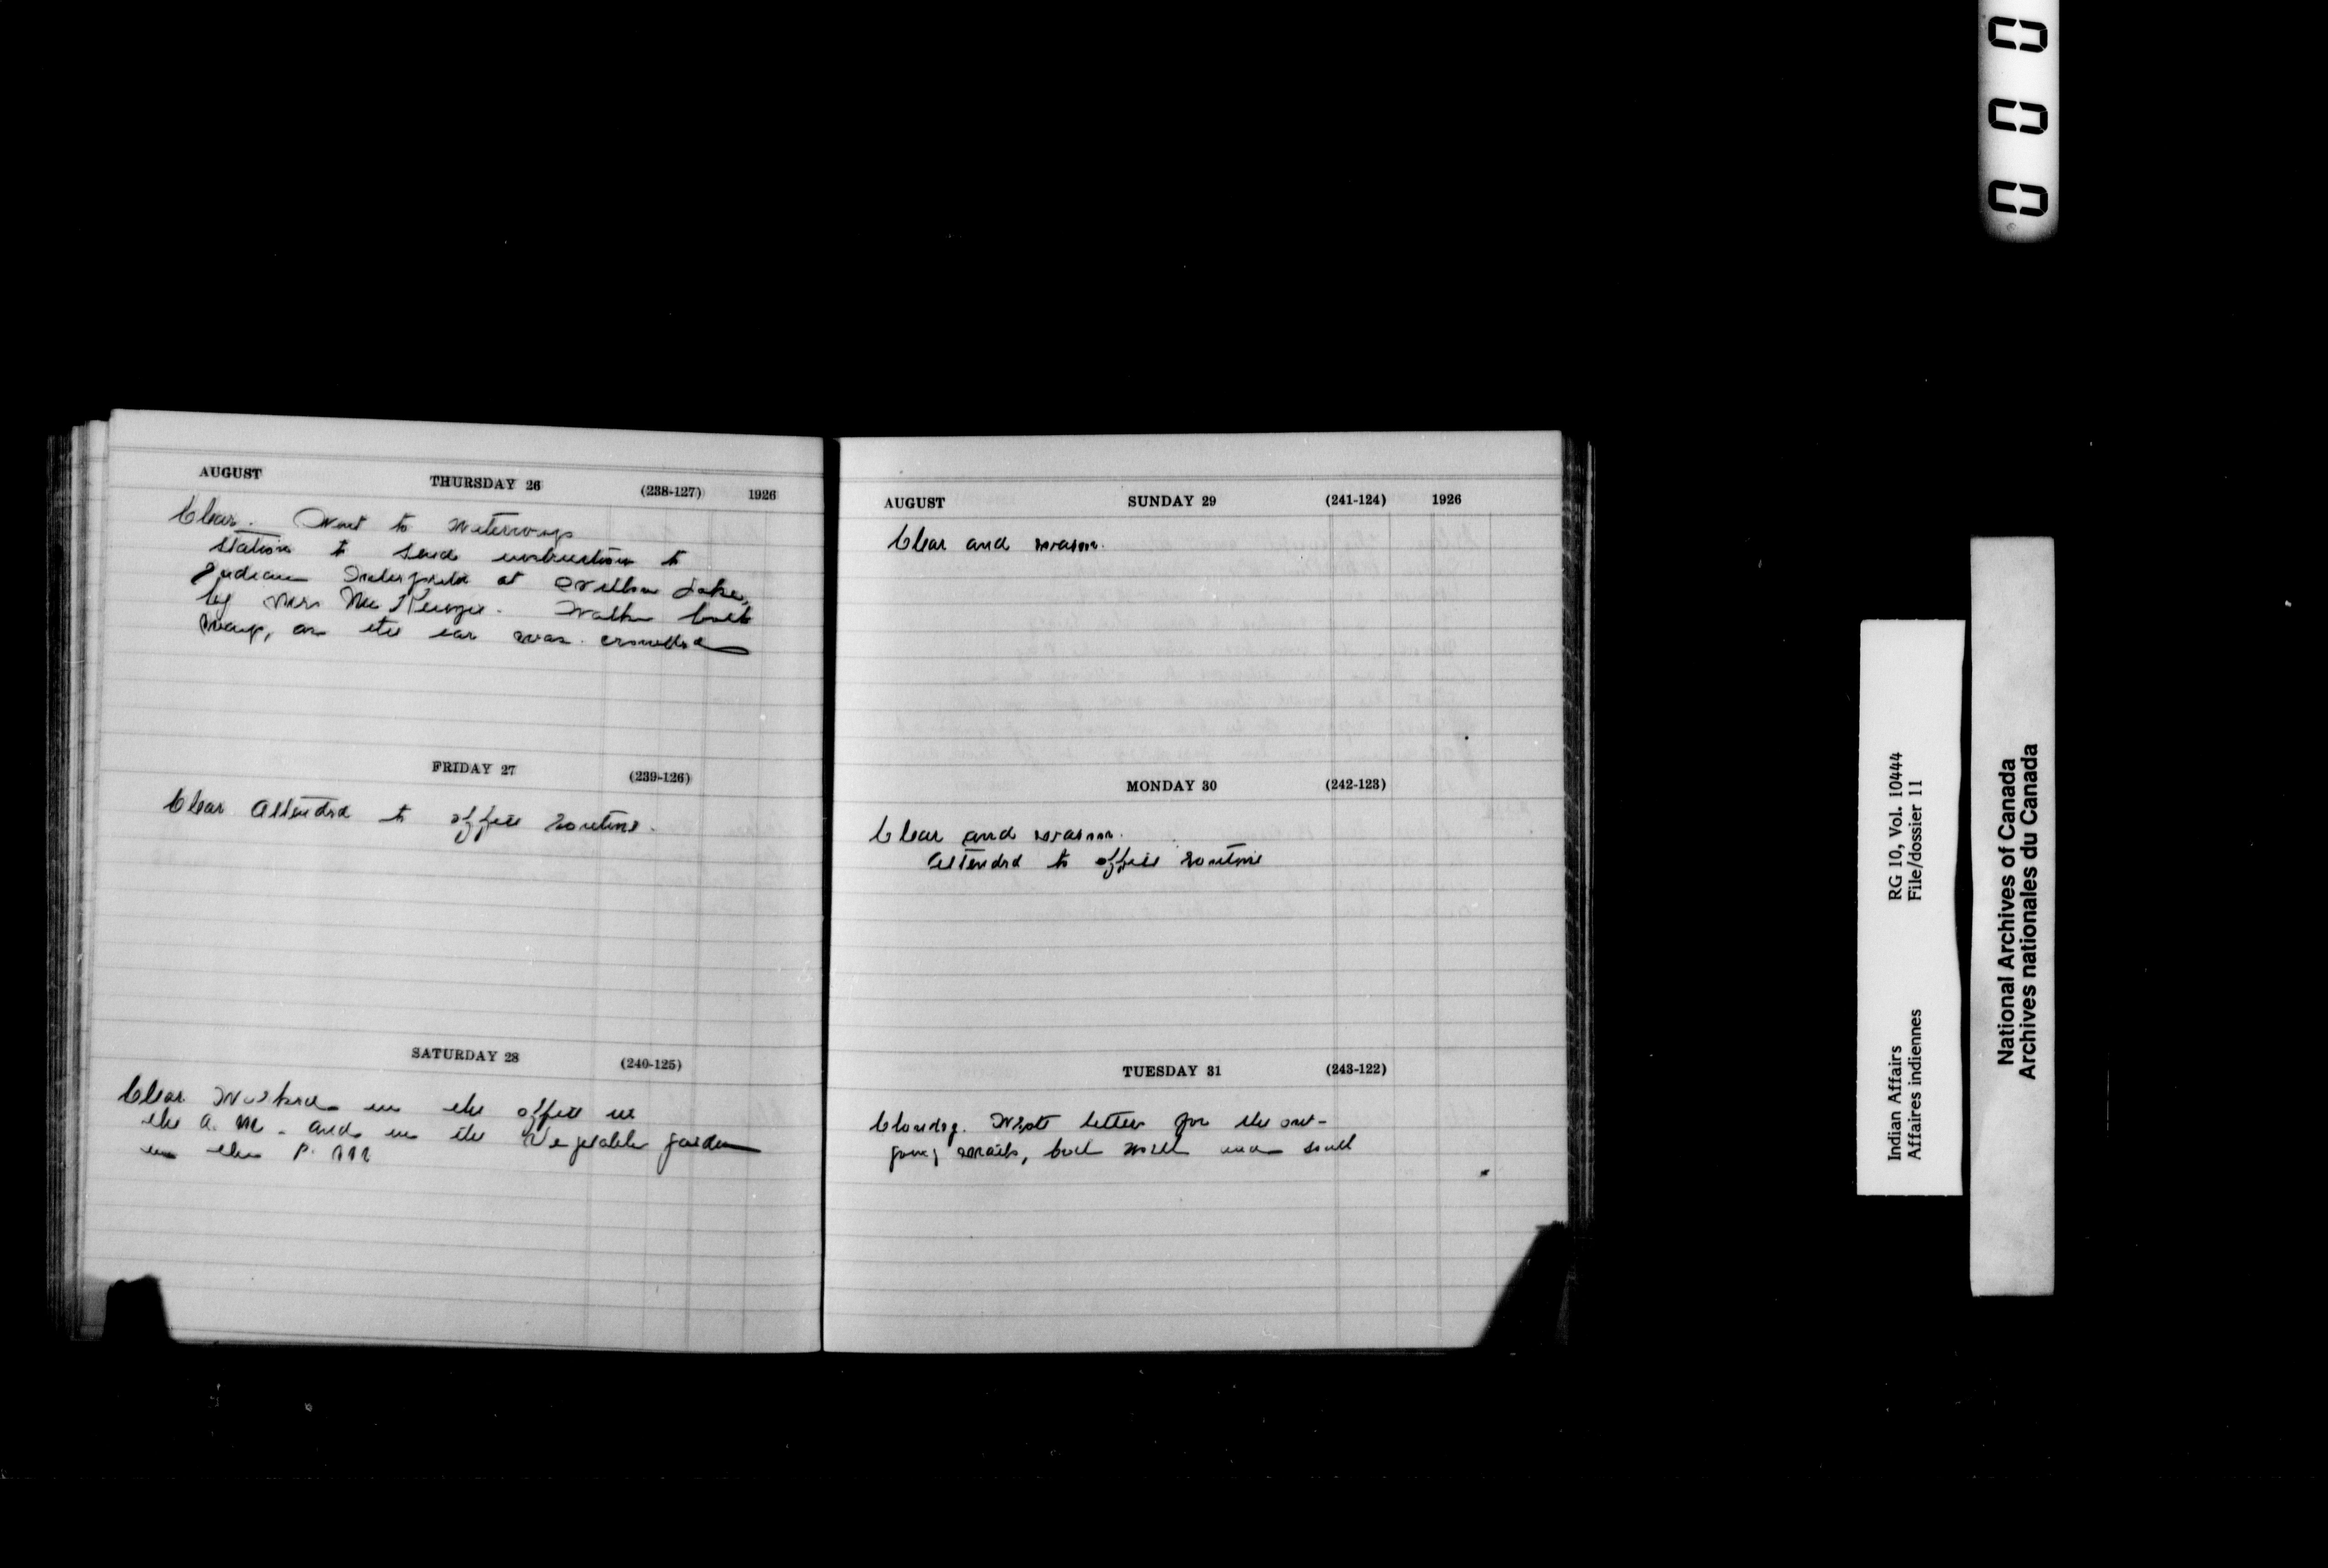 AUGUST THURSDAY 26 (238-127) 1926
Clear. Went to Waterways
station to send instruction to
Indian at Willow Lake,
by Mrs McKenzie. Walked both
ways, as the car was crowded
FRIDAY 27 (239-126)
Clear Attended to office routine.
SATURDAY 28 (240-125)
Clear Worked in the office in
the a.m. and in the Vegetable garden
in the P.M
AUGUST SUNDAY 29 (241-124) 1926
Clear and warm.
MONDAY 30 (242-123)
Clear and warm.
Attended to office routine
TUESDAY 31 (243-122)
Cloudy. Wrote letters for the out-
going mails, both north and south
0 0 0
Indian Affairs RG 10, Vol. 10444
Affaires indiennes File/dossier 11
National Archives of Canada
Archives nationales du Canada